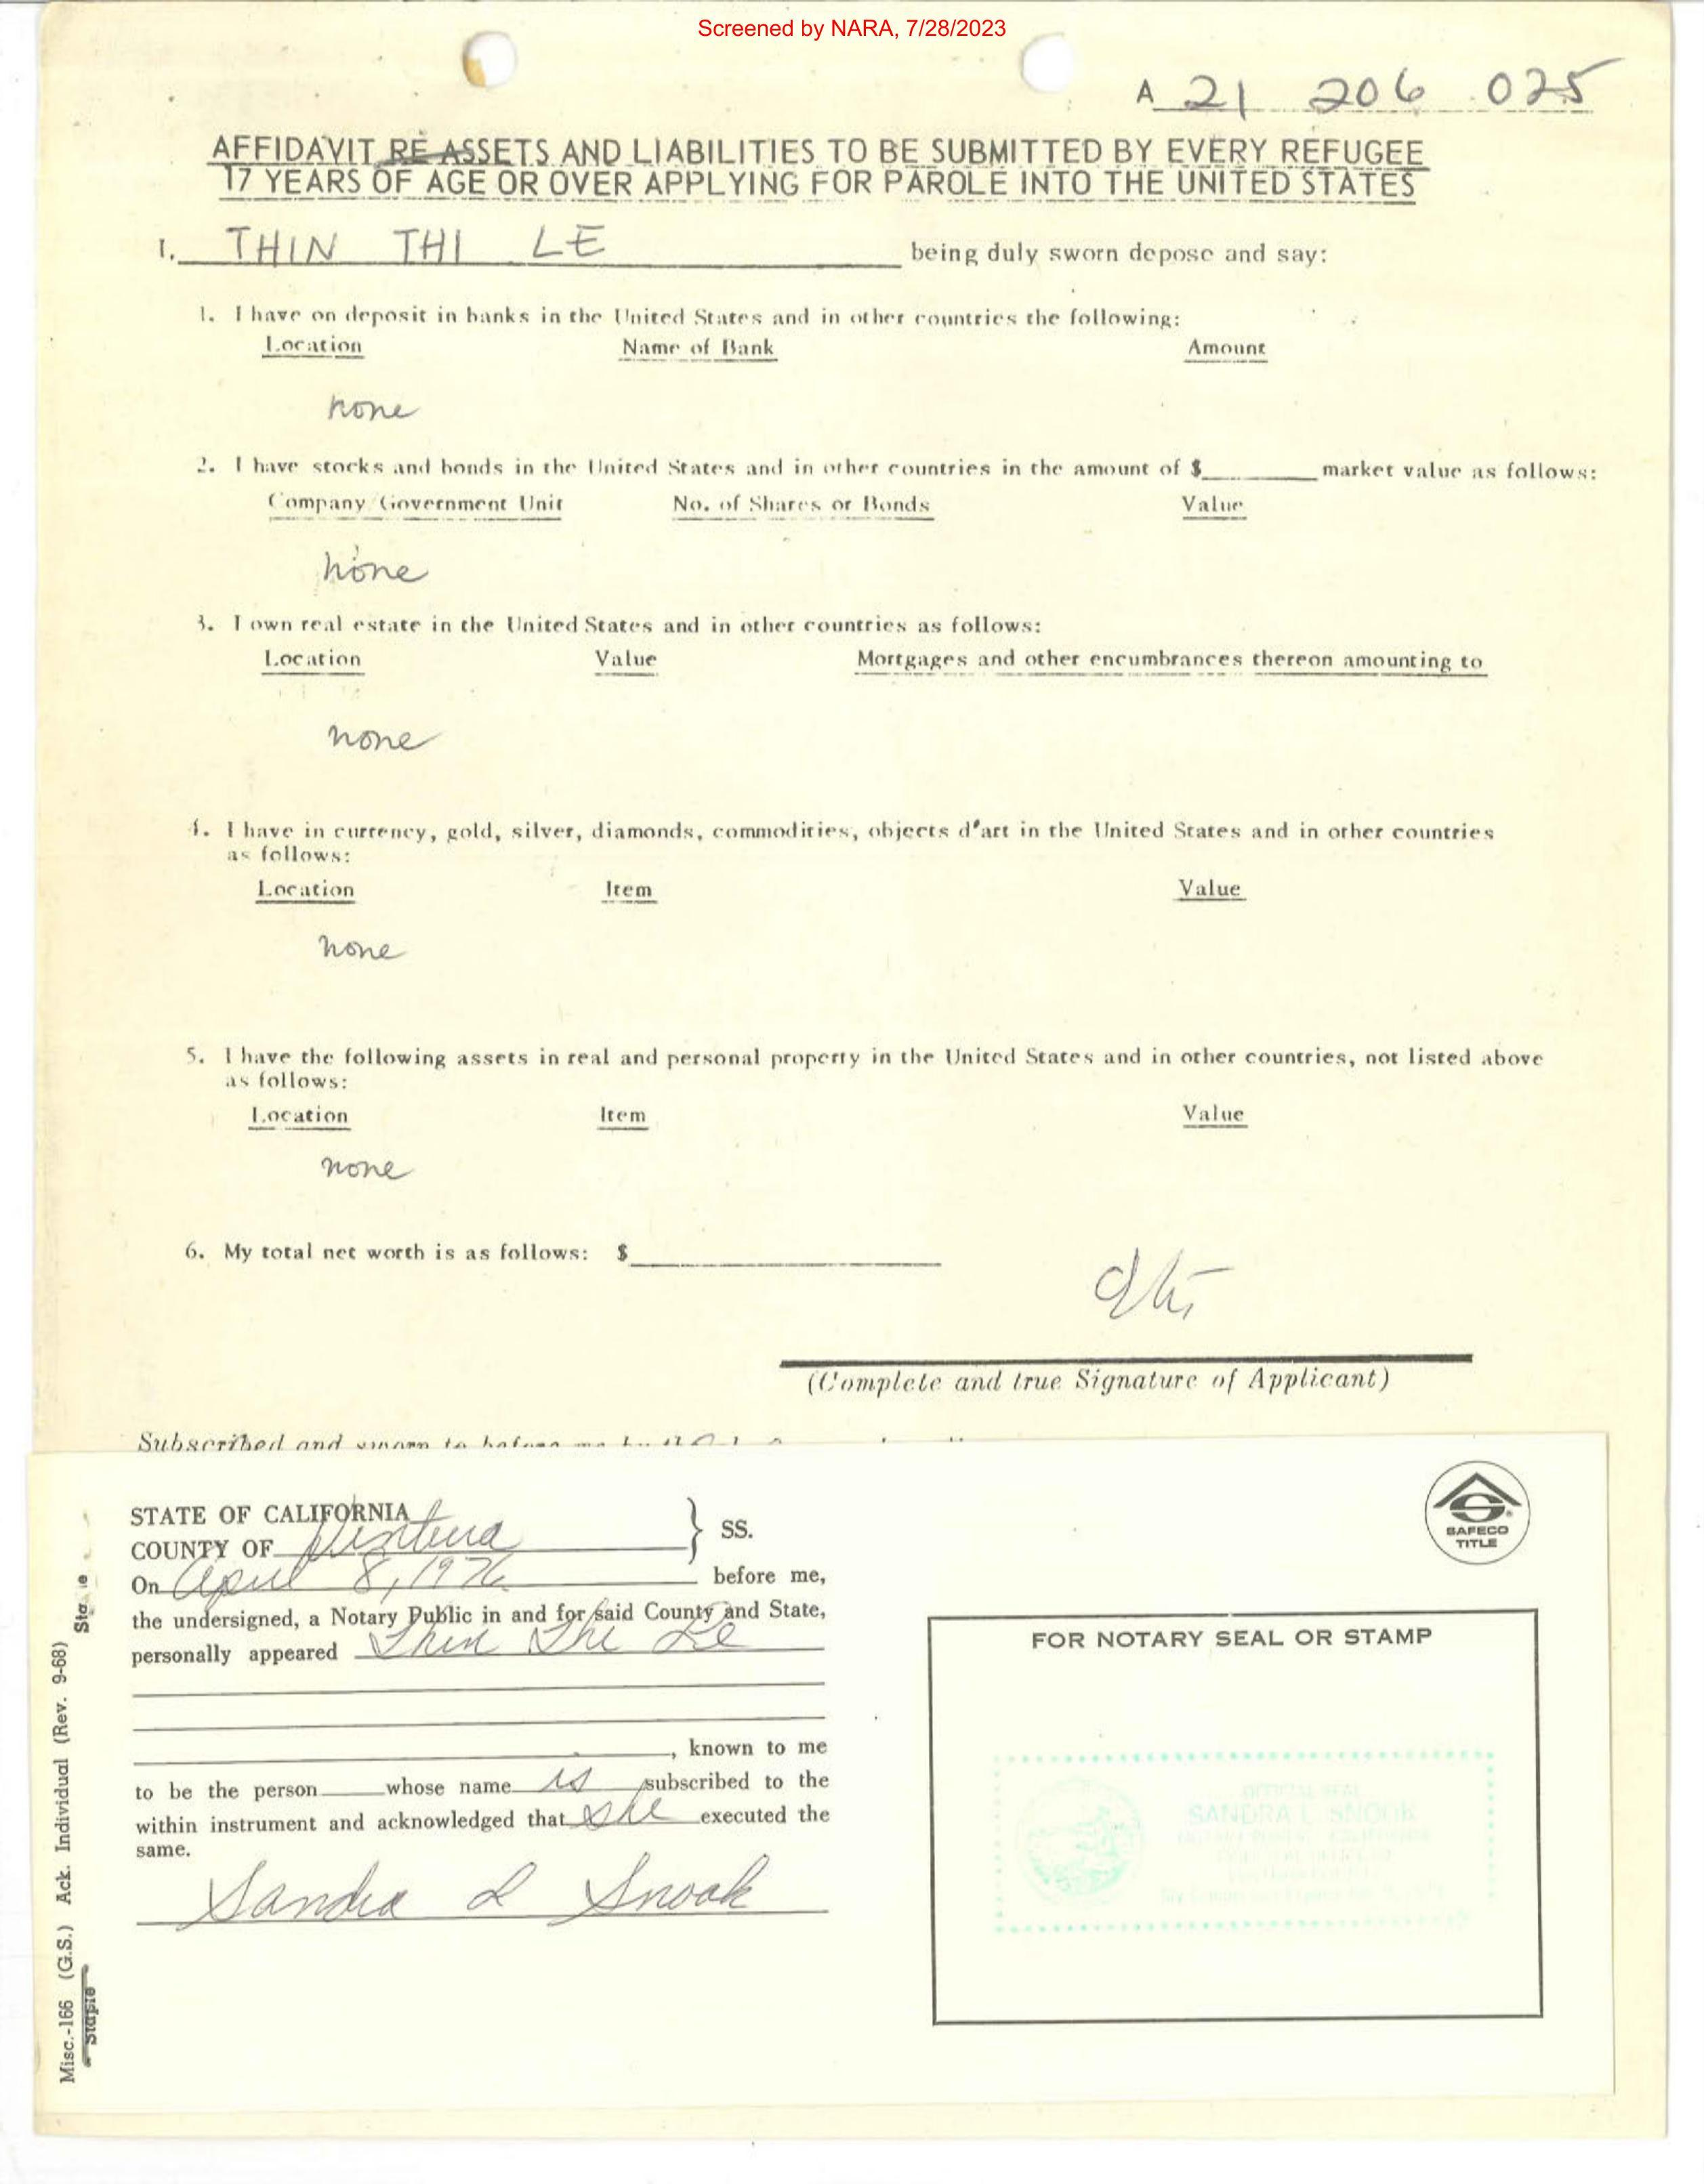 Screened by NARA, 7/28/2023
A 21 206 025
AFFIDAVIT RE ASSETS AND LIABILITIES TO BE SUBMITTED BY EVERY REFUGEE
17 YEARS OF AGE OR OVER APPLYING FOR PAROLE INTO THE UNITED STATES
I. THIN THI LE being duly sworn depose and say:
1. I have on deposit in banks in the United States and in other countries the following:
Location Name of Bank Amount
none
2. I have stocks and bonds in the United States and in other countries in the amount of $ market value as follows:
Company/Government Unit No. of Shares or Bonds Value
none
3. I own real estate in the United States and in other countries as follows:
Location Value Mortgages and other encumbrances thereon amounting to
none
4. I have in currency, gold, silver, diamonds, commodities, objects d'art in the United States and in other countries
as follows:
Location Item Value
none
5. I have the following assets in real and personal property in the United States and in other countries, not listed above
as follows:
Location Item Value
none
6. My total net worth is as follows: $
(Complete and true Signature of Applicant)
Subscribed and sworn to before me
STATE OF CALIFORNIA
COUNTY OF Ventura } SS.
On April 8, 1976 before me,
the undersigned, a Notary Public in and for said County and State,
personally appeared Thin Thi Le
, known to me
to be the person whose name is subscribed to the
within instrument and acknowledged that she executed the
same.
Sandra L Snook
SAFECO
TITLE
FOR NOTARY SEAL OR STAMP
OFFICIAL SEAL
SANDRA L. SNOOK
Misc.-166 (G.S.) Ack. Individual (Rev. 9-68)
Staple
Staple